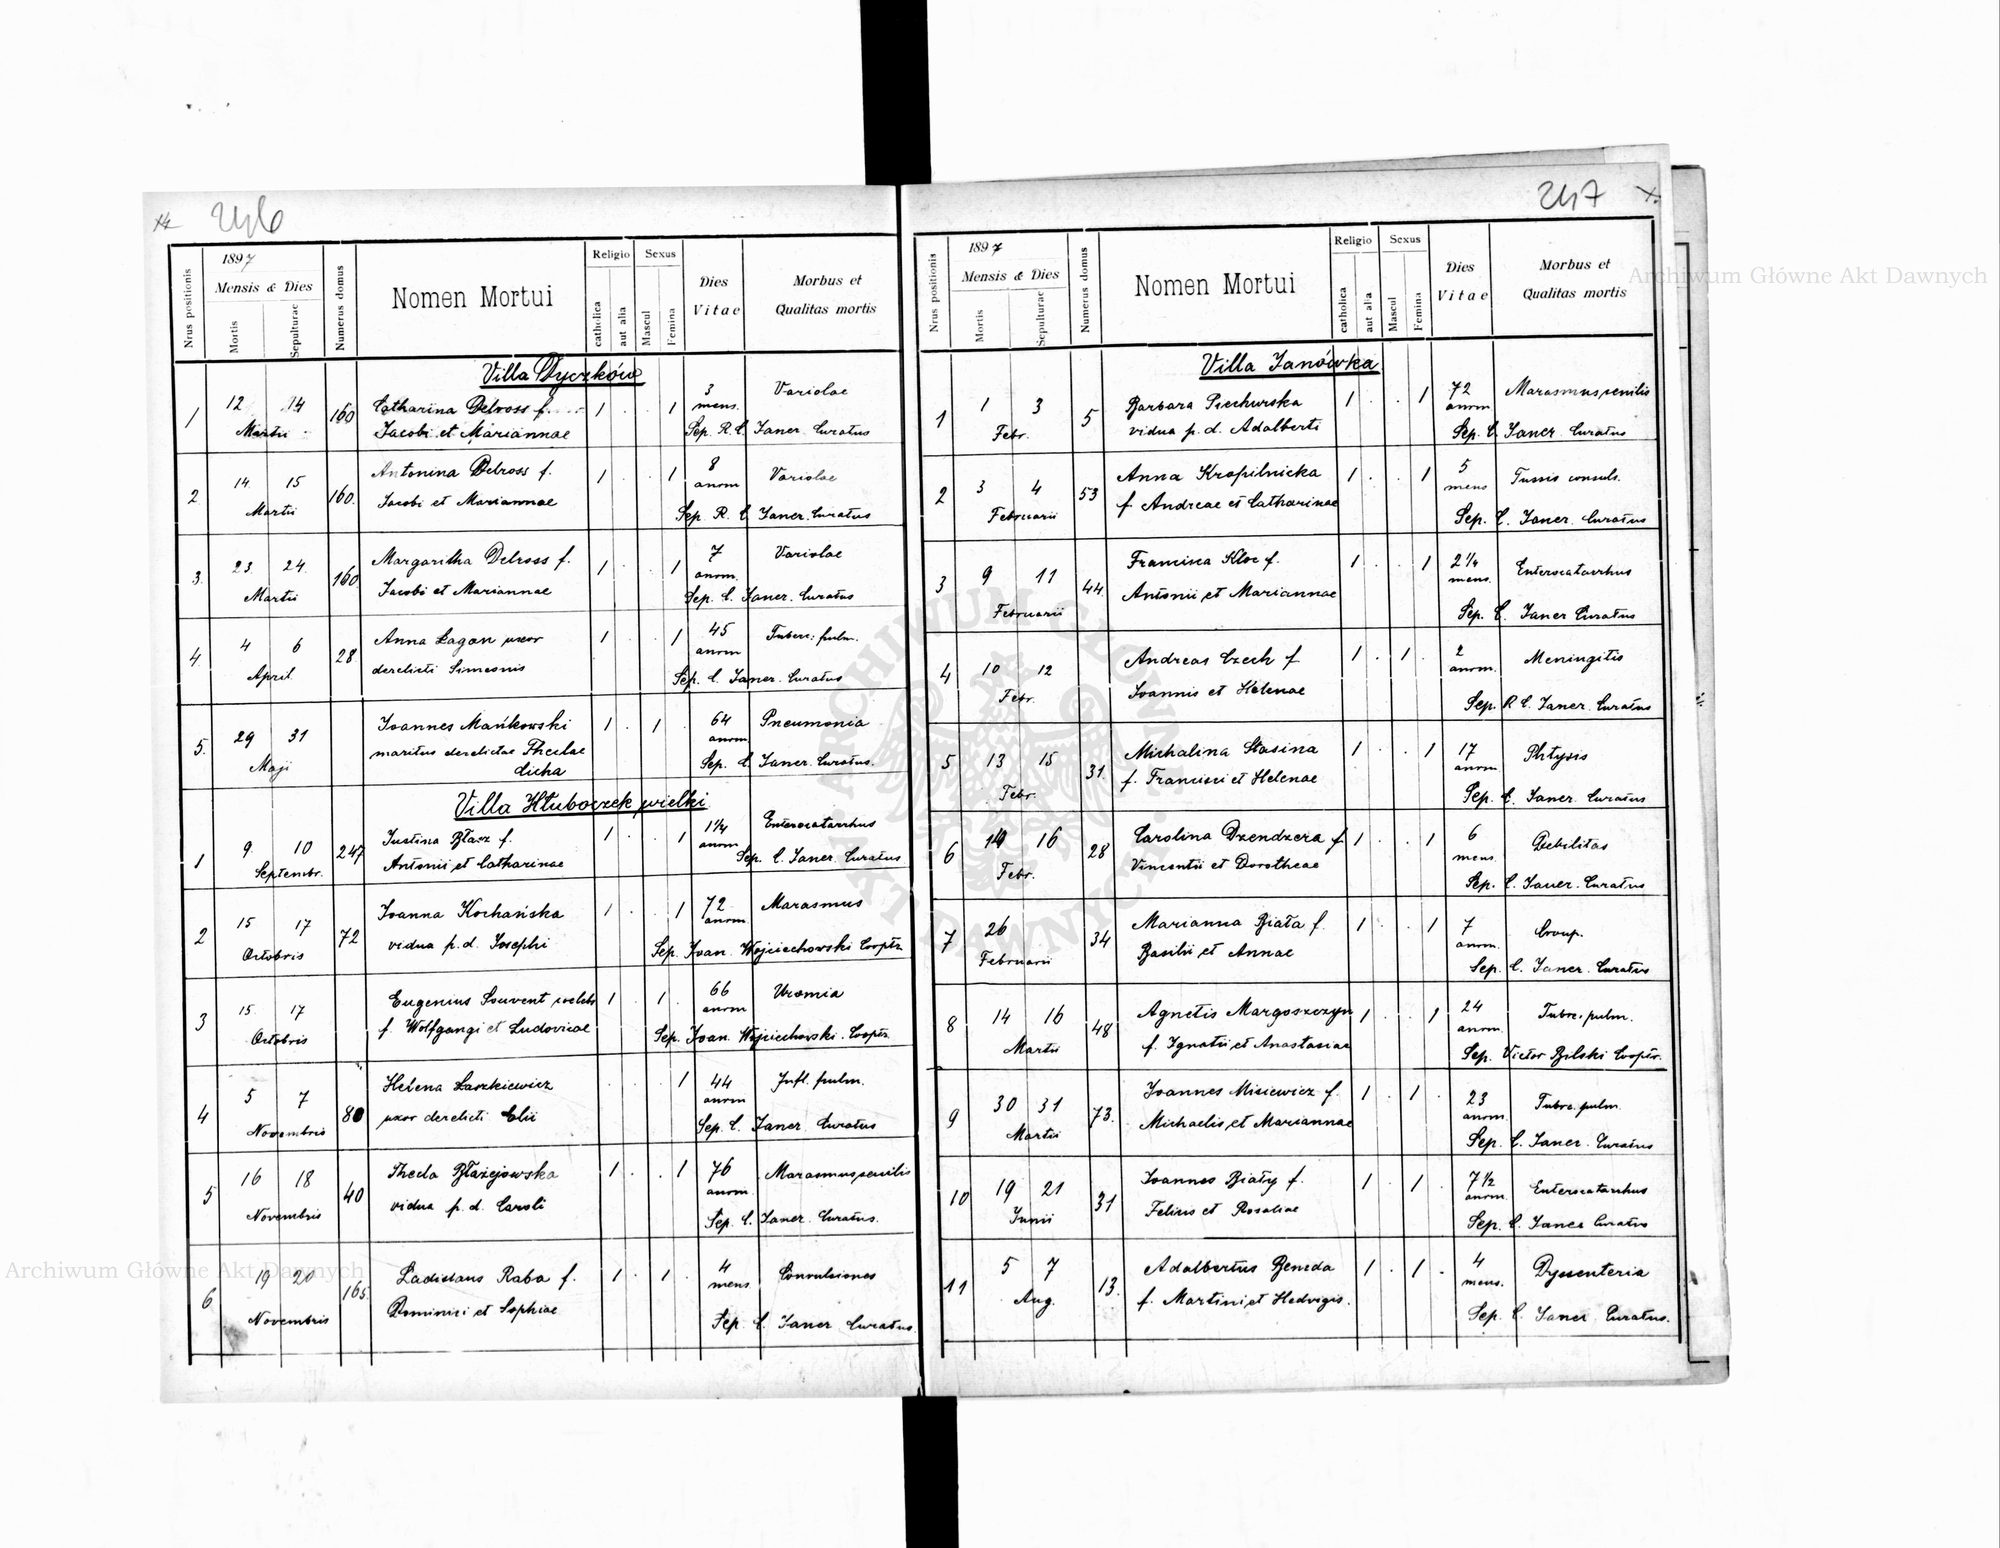 246
1897
Nrus positionis
Mensis & Dies
Mortis
Sepulturae
Numerus domus
Nomen Mortui
Religio
catholica
aut alia
Sexus
Mascul
Femina
Dies
Vitae
Morbus et
Qualitas mortis
Villa Dyczków
1 12 14 160 Catharina Delross f. 1 . . 1 3 Variolae
Martii Jacobi et Mariannae mens. Sep. R. C. Janer. Curatus
2 14 15 160. Antonina Delross f. 1 . . 1 8 Variolae
Martii Jacobi et Mariannae anorm Sep. R. C. Janer. Curatus
3. 23 24 160 Margaritha Delross f. 1 . . 1 7 Variolae
Martii Jacobi et Mariannae anorm. Sep. C. Janer. Curatus
4. 4 6 28 Anna Łagan uxor 1 . . 1 45 Tuberc: pulm.
April. derelicti Simeonis anorm Sep. C. Janer. Curatus
5. 29 31 Joannes Mańkowski 1 . 1 . 64 Pneumonia
Maji maritus derelictae Theclae anorm Sep. C. Janer. Curatus.
Licha
Villa Hłuboczek wielki
1 9 10 247 Justina Błasz f. 1 . . 1 1 1/4 Enterocatarrhus
Septembr. Antonii et Catharinae anorm Sep. C. Janer. Curatus
2 15 17 72 Joanna Kochańska 1 . . 1 72 Marasmus
Octobris vidua p. d. Josephi anorm Sep. Joan. Wojciechowski Cooptr.
3 15 17 Eugenius Souvent coelebs 1 . 1 . 66 Uremia
Octobris f. Wolfgangi et Ludovicae anorm Sep. Joan. Wojciechowski. Cooptr.
4 5 7 80 Helena Łaszkiewicz . . . 1 44 Infl. pulm.
Novembris uxor derelicti Elii anorm Sep. C. Janer. Curatus
5 16 18 40 Thecla Błażejowska 1 . . 1 76 Marasmus senilis
Novembris vidua p. d. Caroli anorm. Sep. C. Janer. Curatus.
6 19 20 165. Ladislaus Raba f. 1 . 1 . 4 Convulsiones
Novembris Dominici et Sophiae mens. Sep. C. Janer Curatus.
247
1897
Nrus positionis
Mensis & Dies
Mortis
Sepulturae
Numerus domus
Nomen Mortui
Religio
catholica
aut alia
Sexus
Mascul
Femina
Dies
Vitae
Morbus et
Qualitas mortis
Villa Janówka
1 1 3 5 Barbara Piechurska 1 . . 1 72 Marasmus senilis
Febr. vidua p. d. Adalberti anorm Sep. C. Janer. Curatus
2 3 4 53 Anna Kropilnicka 1 . . 1 5 Tussis convuls.
Februarii f. Andreae et Catharinae mens Sep. C. Janer. Curatus
3 9 11 44. Francisca Kloc f. 1 . . 1 2 1/4 Enterocatarrhus
Februarii Antonii et Mariannae mens. Sep. C. Janer Curatus
4 10 12 Andreas Czech f 1 . 1 . 2 Meningitis
Febr. Joannis et Helenae anorm. Sep. R. C. Janer. Curatus
5 13 15 31. Michalina Stasina 1 . . 1 17 Phtysis
Febr. f. Francisci et Helenae anorm. Sep. C. Janer. Curatus
6 14 16 28 Carolina Dzendzera f 1 . . 1 6 Debilitas
Febr. Vincentii et Dorotheae mens. Sep. C. Janer. Curatus
7 26 34 Marianna Biała f. 1 . . 1 7 Croup.
Februarii Basilii et Annae anorm. Sep. C. Janer. Curatus
8 14 16 48 Agnetis Margoszczyn 1 . . 1 24 Tubrc. pulm.
Martii f. Ignatii et Anastasiae anorm. Sep. Victor Bilski Cooptr.
9 30 31 73. Joannes Misiewicz f. 1 . 1 . 23 Tubrc. pulm.
Martii Michaelis et Mariannae anorm. Sep. C. Janer. Curatus
10 19 21 31 Joannes Biały f. 1 . 1 . 7 1/2 Enterocatarrhus
Junii Felicis et Rosaliae anorm. Sep. C. Janer Curatus
11 5 7 13. Adalbertus Beneda 1 . 1 . 4 Dyssenteria
Aug. f. Martini et Hedvigis. mens. Sep. C. Janer Curatus.
Archiwum Główne Akt Dawnych
Archiwum Główne Akt Dawnych
ARCHIWUM GŁÓWNE AKT DAWNYCH